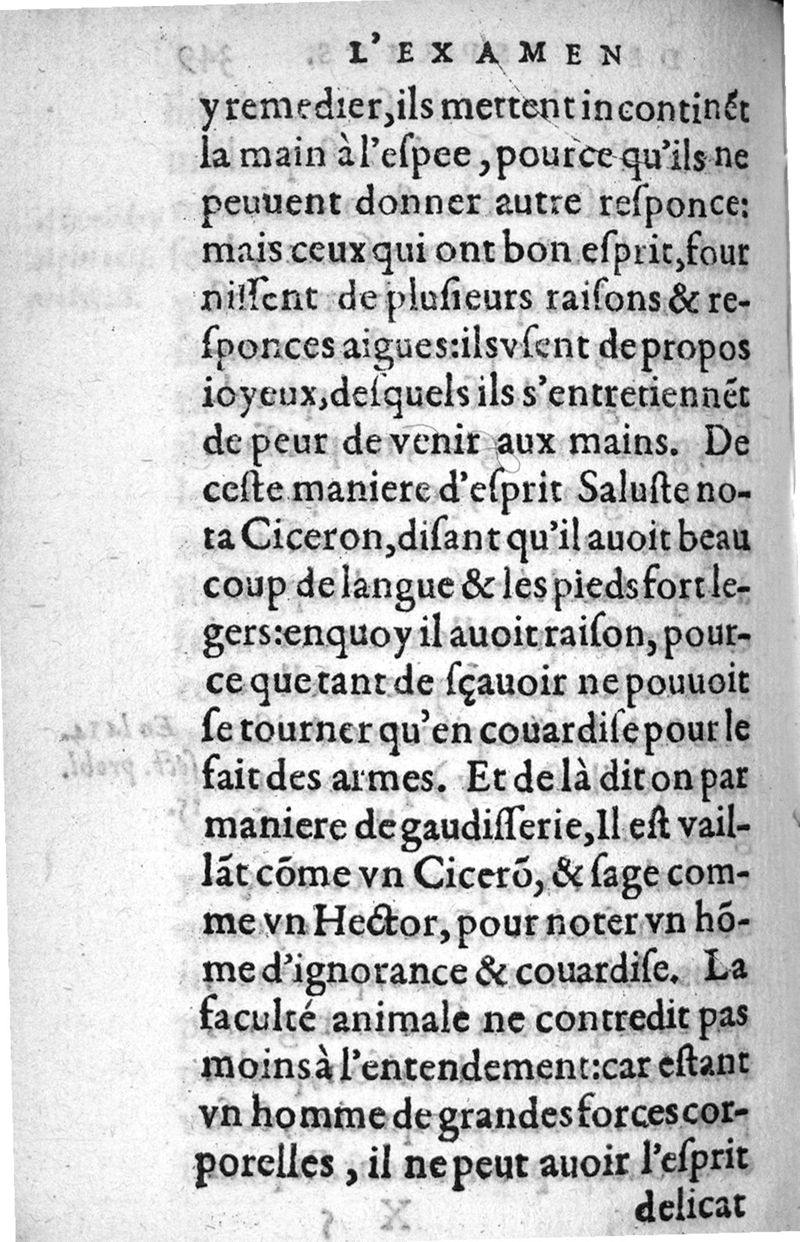 L'EXAMEN
y remedier, ils mettent incontinẽt
la main à l'eſpee, pource qu'ils ne
peuuent donner autre reſponce:
mais ceux qui ont bon eſprit, four
niſſent de pluſieurs raiſons & re-
ſponces aigues: ils vſent de propos
ioyeux, deſquels ils s'entretiennẽt
de peur de venir aux mains. De
ceſte maniere d'eſprit Saluſte no-
ta Ciceron, diſant qu'il auoit beau
coup de langue & les pieds fort le-
gers: enquoy il auoit raiſon, pour-
ce que tant de ſçauoir ne pouuoit
ſe tourner qu'en couardiſe pour le
fait des armes. Et de là dit on par
maniere de gaudiſſerie, Il eſt vail-
lãt cõme vn Cicerõ, & ſage com-
me vn Hector, pour noter vn hõ-
me d'ignorance & couardiſe. La
faculté animale ne contredit pas
moins à l'entendement: car eſtant
vn homme de grandes forces cor-
porelles, il ne peut auoir l'eſprit
delicat